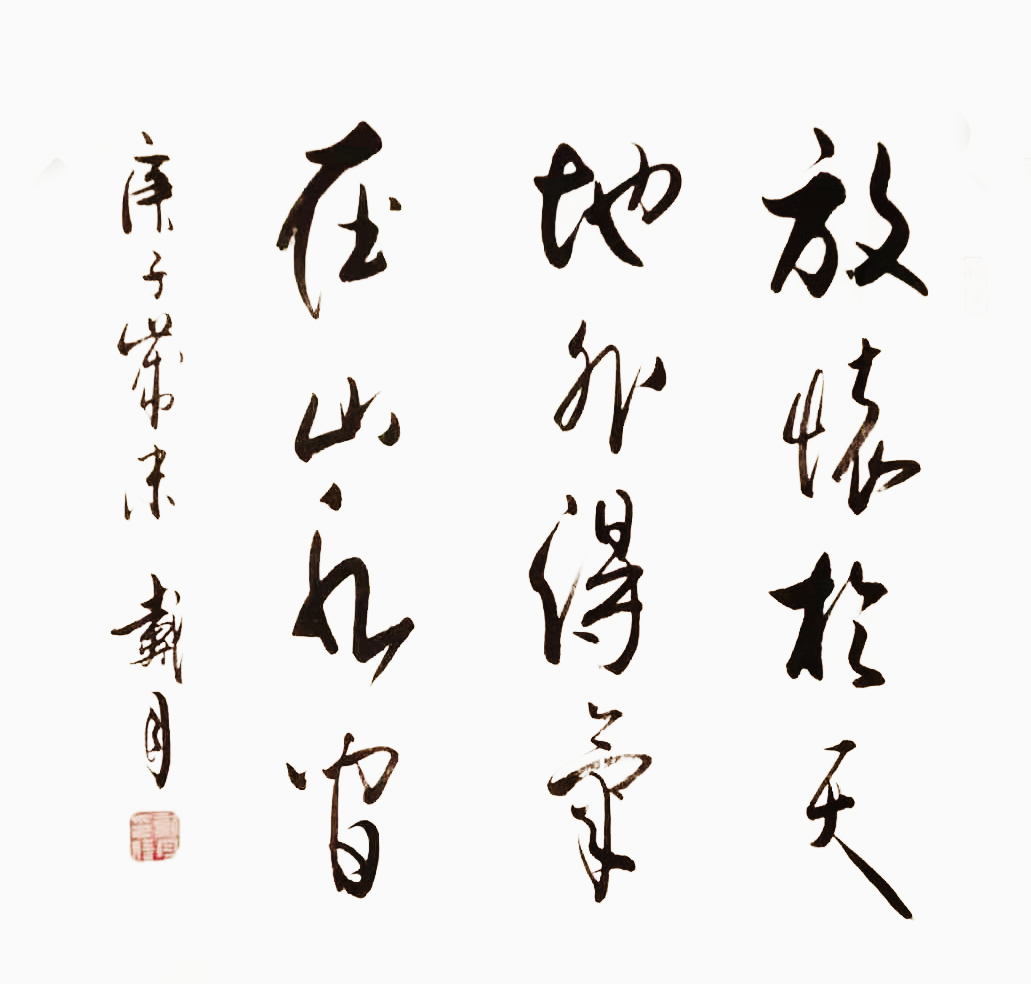 放懷於天
地外得氣
在山水間
庚子歲末 戴月